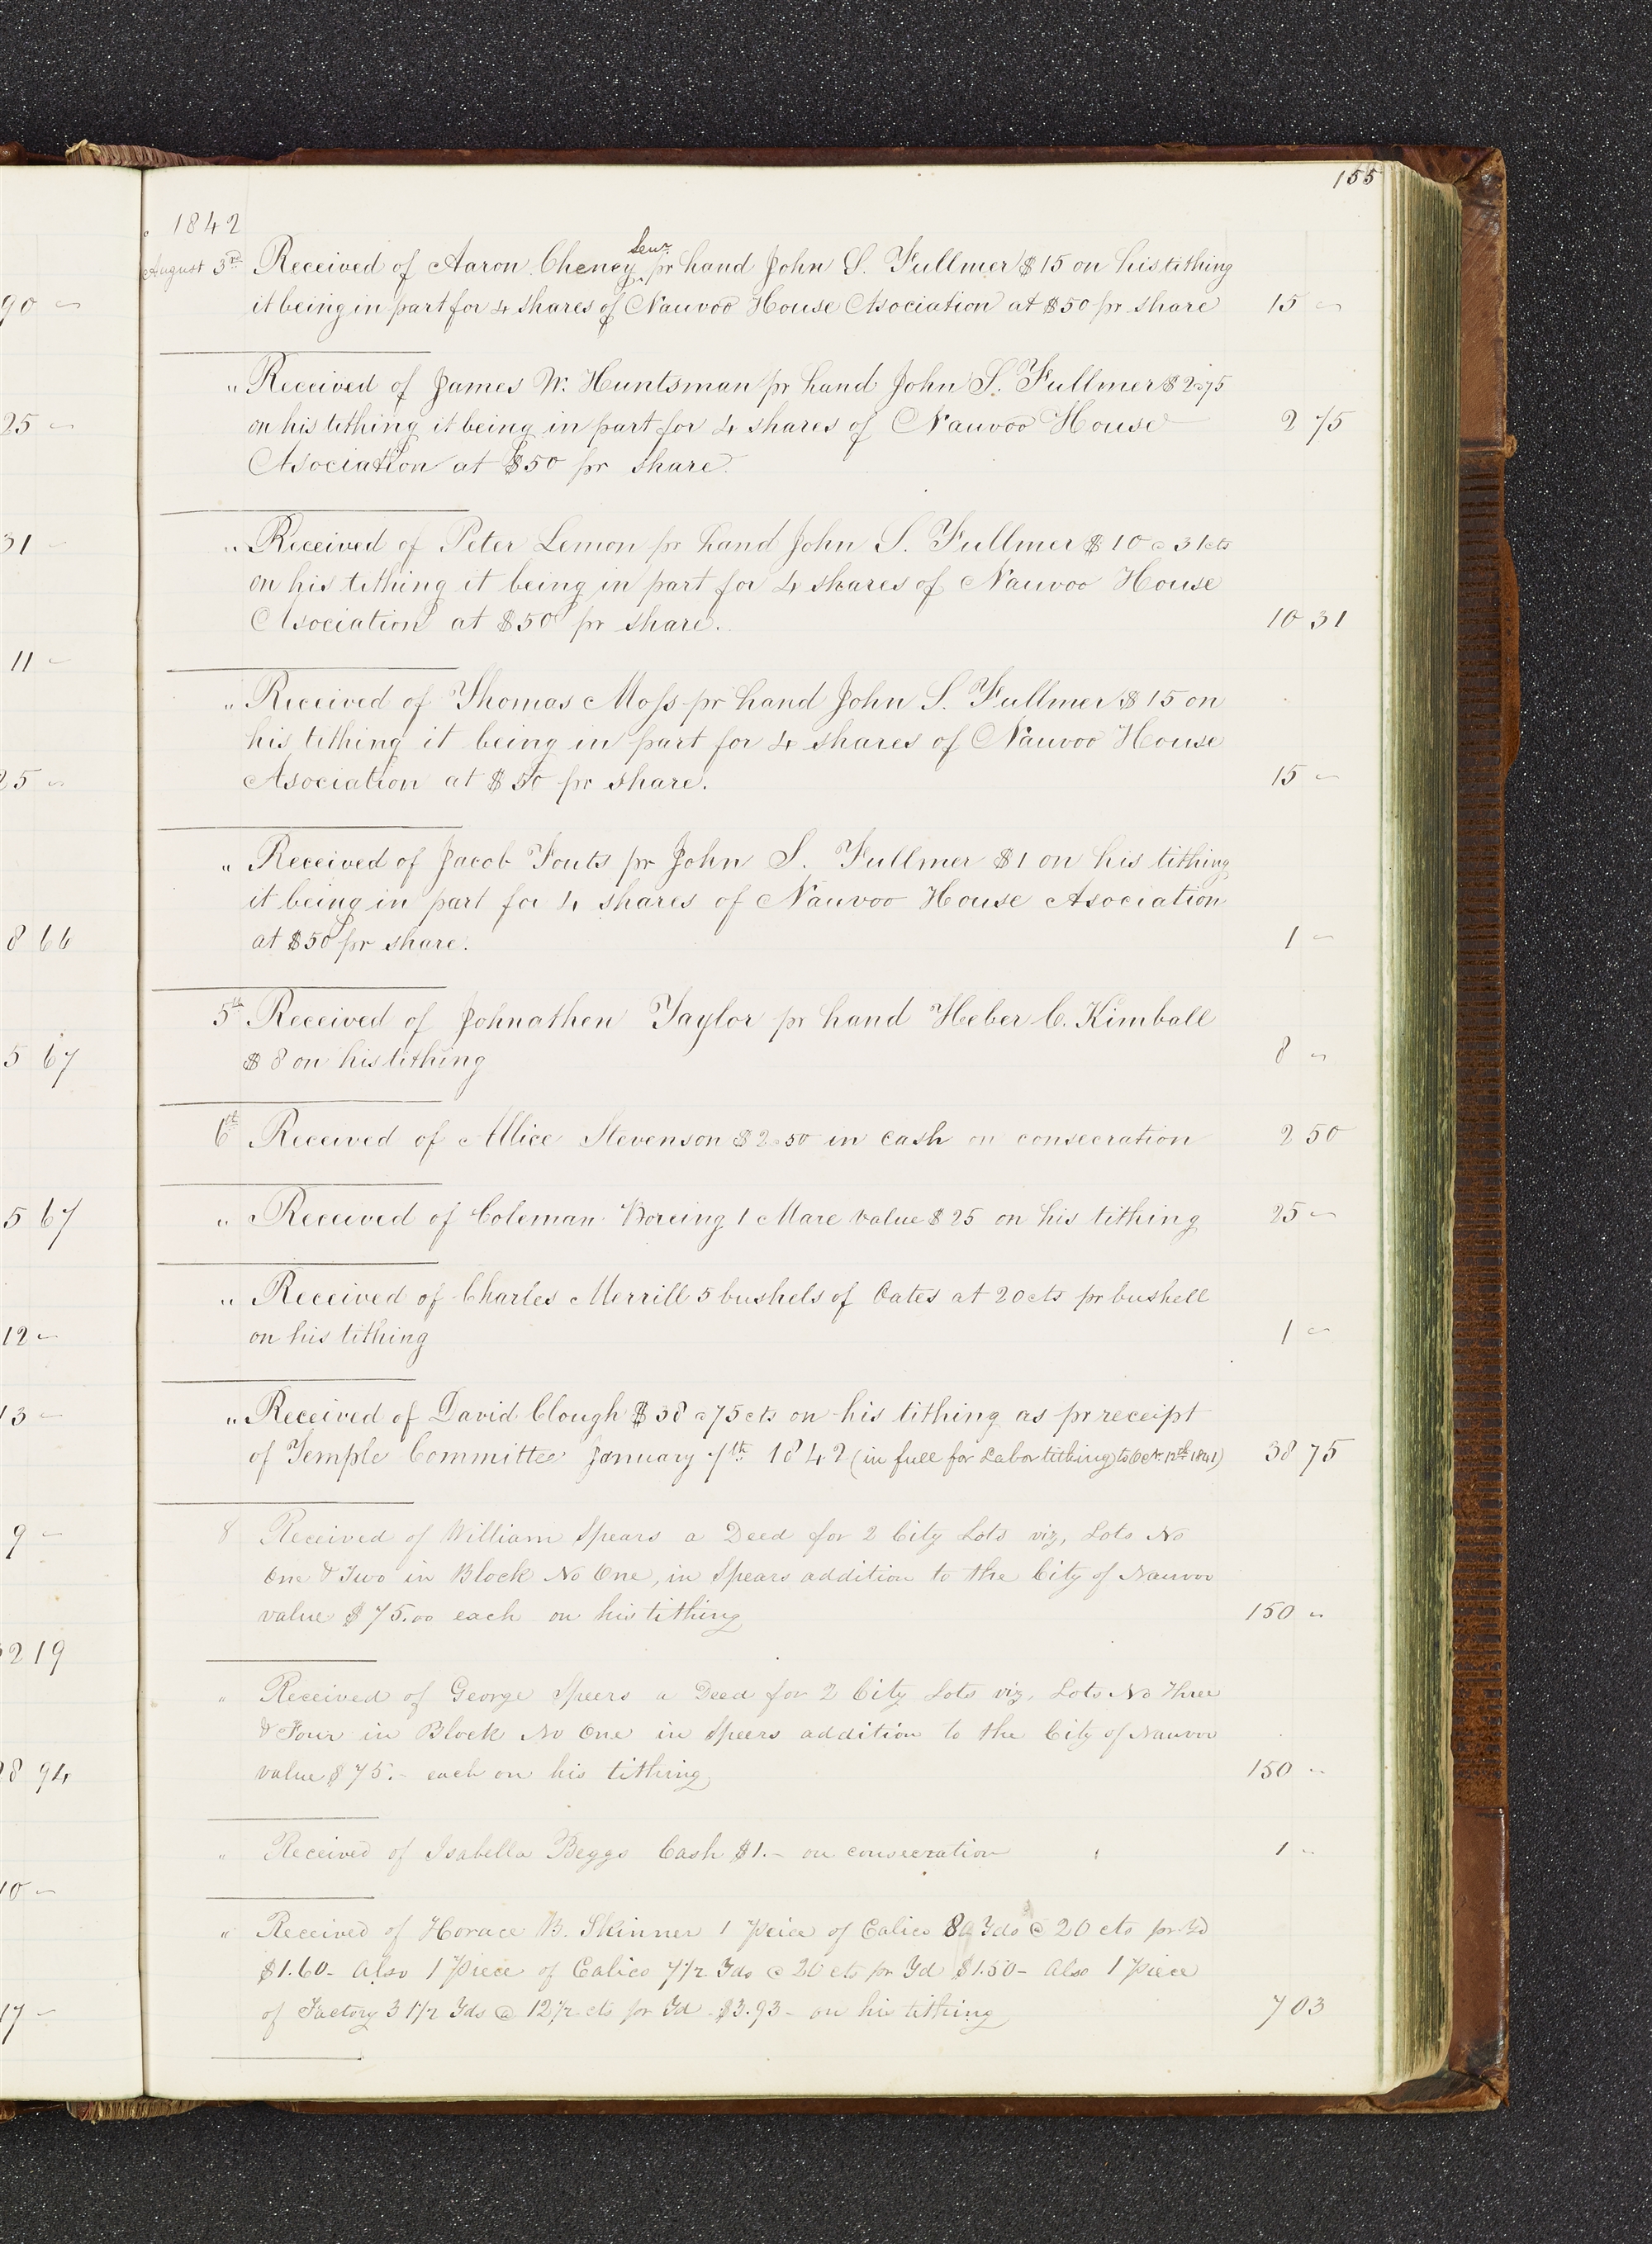 155
1842
August 3rd Received of Aaron Cheney Senr. pr hand John S. Fullmer $15 on his tithing
it being in part for 4 shares of Nauvoo House Asociation at $50 pr share 15 "
90 "
" Received of James W. Huntsman pr hand John S. Fullmer $2=75
on his tithing it being in part for 4 shares of Nauvoo House 2 75
25 "
Asociation at $50 pr share.
" Received of Peter Lemon pr hand John S. Fullmer $10=31cts
31 "
on his tithing it being in part for 4 shares of Nauvoo House
Asociation at $50 pr share. 10 31
11 "
" Received of Thomas Moss pr hand John S. Fullmer $15 on
his tithing it being in part for 4 shares of Nauvoo House
Asociation at $50 pr share. 15 "
25 "
" Received of Jacob Fouts pr John S. Fullmer $1 on his tithing
it being in part for 4 shares of Nauvoo House Asociation
at $50 pr share. 1 "
8 66
5th Received of Johnathon Taylor pr hand Heber C. Kimball
$8 on his tithing 8 "
5 67
6th Received of Allice Stevenson $2=50 in cash on consecration 2 50
" Received of Coleman Boreing 1 Mare value $25 on his tithing 25 "
5 67
" Received of Charles Merrill 5 bushels of Oates at 20cts pr bushell
on his tithing 1 "
12 "
" Received of David Clough $38=75cts on his tithing as pr receipt
13 "
of Temple Committe January 7th 1842 (in full for Labor tithing) to Oct. 12th 1841) 38 75
8 Received of William Spears a Deed for 2 City Lots viz, Lots No
9 "
One & Two in Block No One, in Spears addition to the City of Nauvoo
value $75.00 each on his tithing 150 "
32 19
" Received of George Speers a Deed for 2 City Lots viz, Lots No Three
& Four in Block No One in Speers addition to the City of Nauvoo
value $75.- each on his tithing 150 "
28 94
" Received of Isabella Beggs Cash $1.- on consecration 1 "
10 "
" Received of Horace B. Skinner 1 Peice of Calico 8 Yds @ 20 cts pr Yd
$1.60- Also 1 Piece of Calico 7 1/2 Yds @ 20 cts pr Yd $1.50- Also 1 Piece
of Factory 31 1/2 Yds @ 12 1/2 cts pr Yd $3.93- on his tithing 7 03
17 "